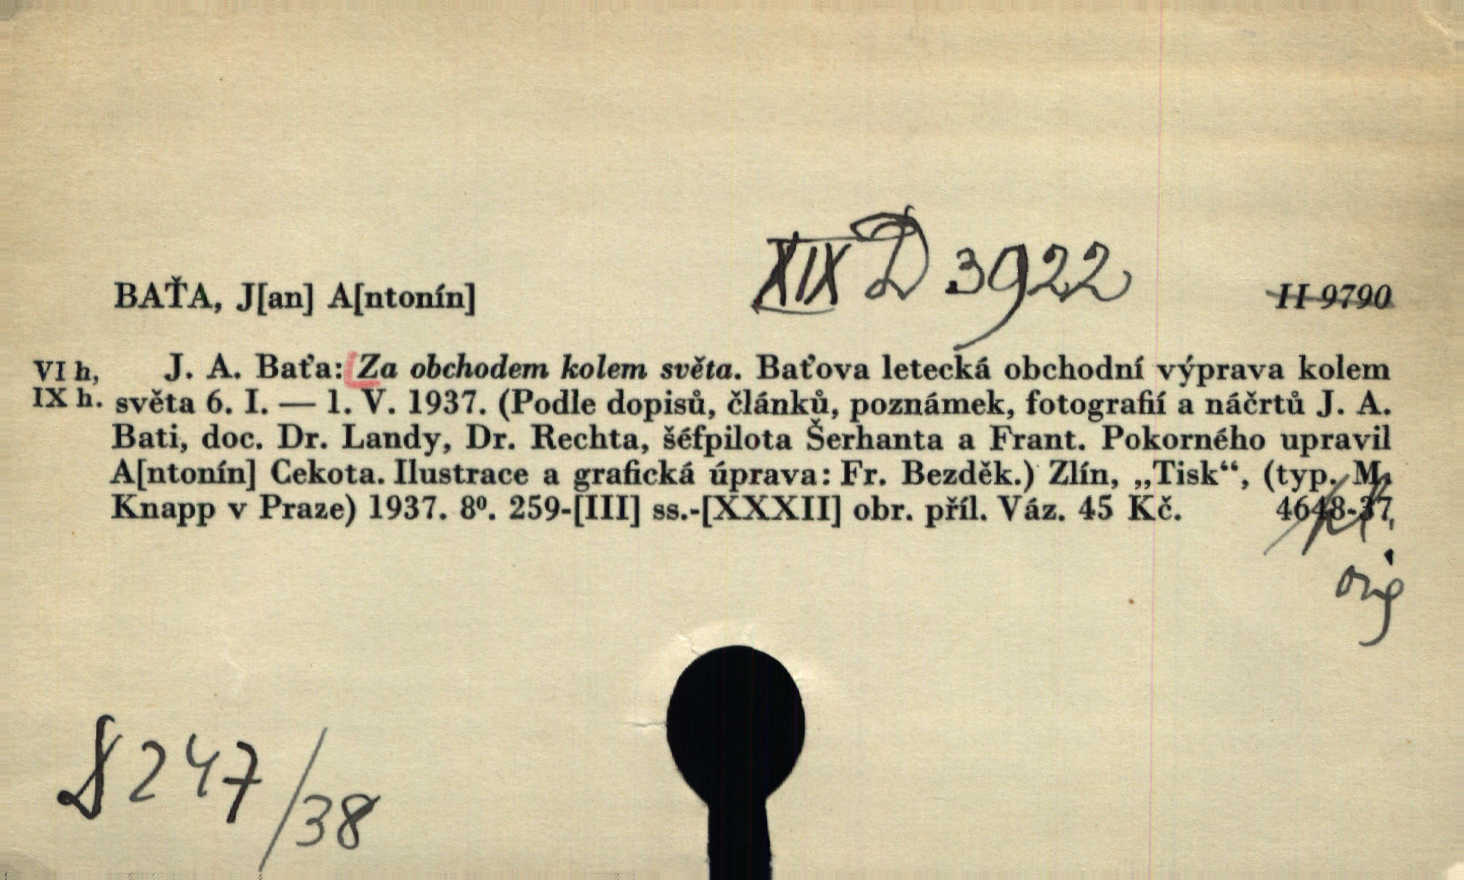 XIX D 3922
BAŤA, J[an] A[ntonín] II 9790
VI h, J. A. Baťa: Za obchodem kolem světa. Baťova letecká obchodní výprava kolem
IX h. světa 6. I. — 1. V. 1937. (Podle dopisů, článků, poznámek, fotografií a náčrtů J. A.
Bati, doc. Dr. Landy, Dr. Rechta, šéfpilota Šerhanta a Frant. Pokorného upravil
A[ntonín] Cekota. Ilustrace a grafická úprava: Fr. Bezděk.) Zlín, „Tisk“, (typ. M.
Knapp v Praze) 1937. 8⁰. 259-[III] ss.-[XXXII] obr. příl. Váz. 45 Kč. 4648-37
orig
247/38